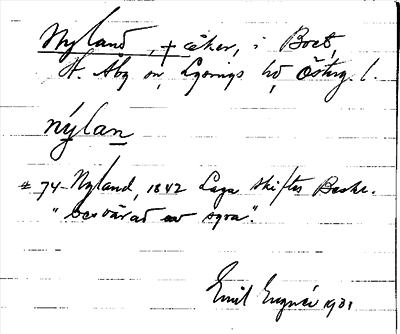 Nyland, + åker, i Boet,
St. Åby sn, Lysings hd, Östrg. l.
nýlan
# 74 - Nyland, 1842 Laga skiftes Beskr.
"besvärad av syra".
Emil 1931